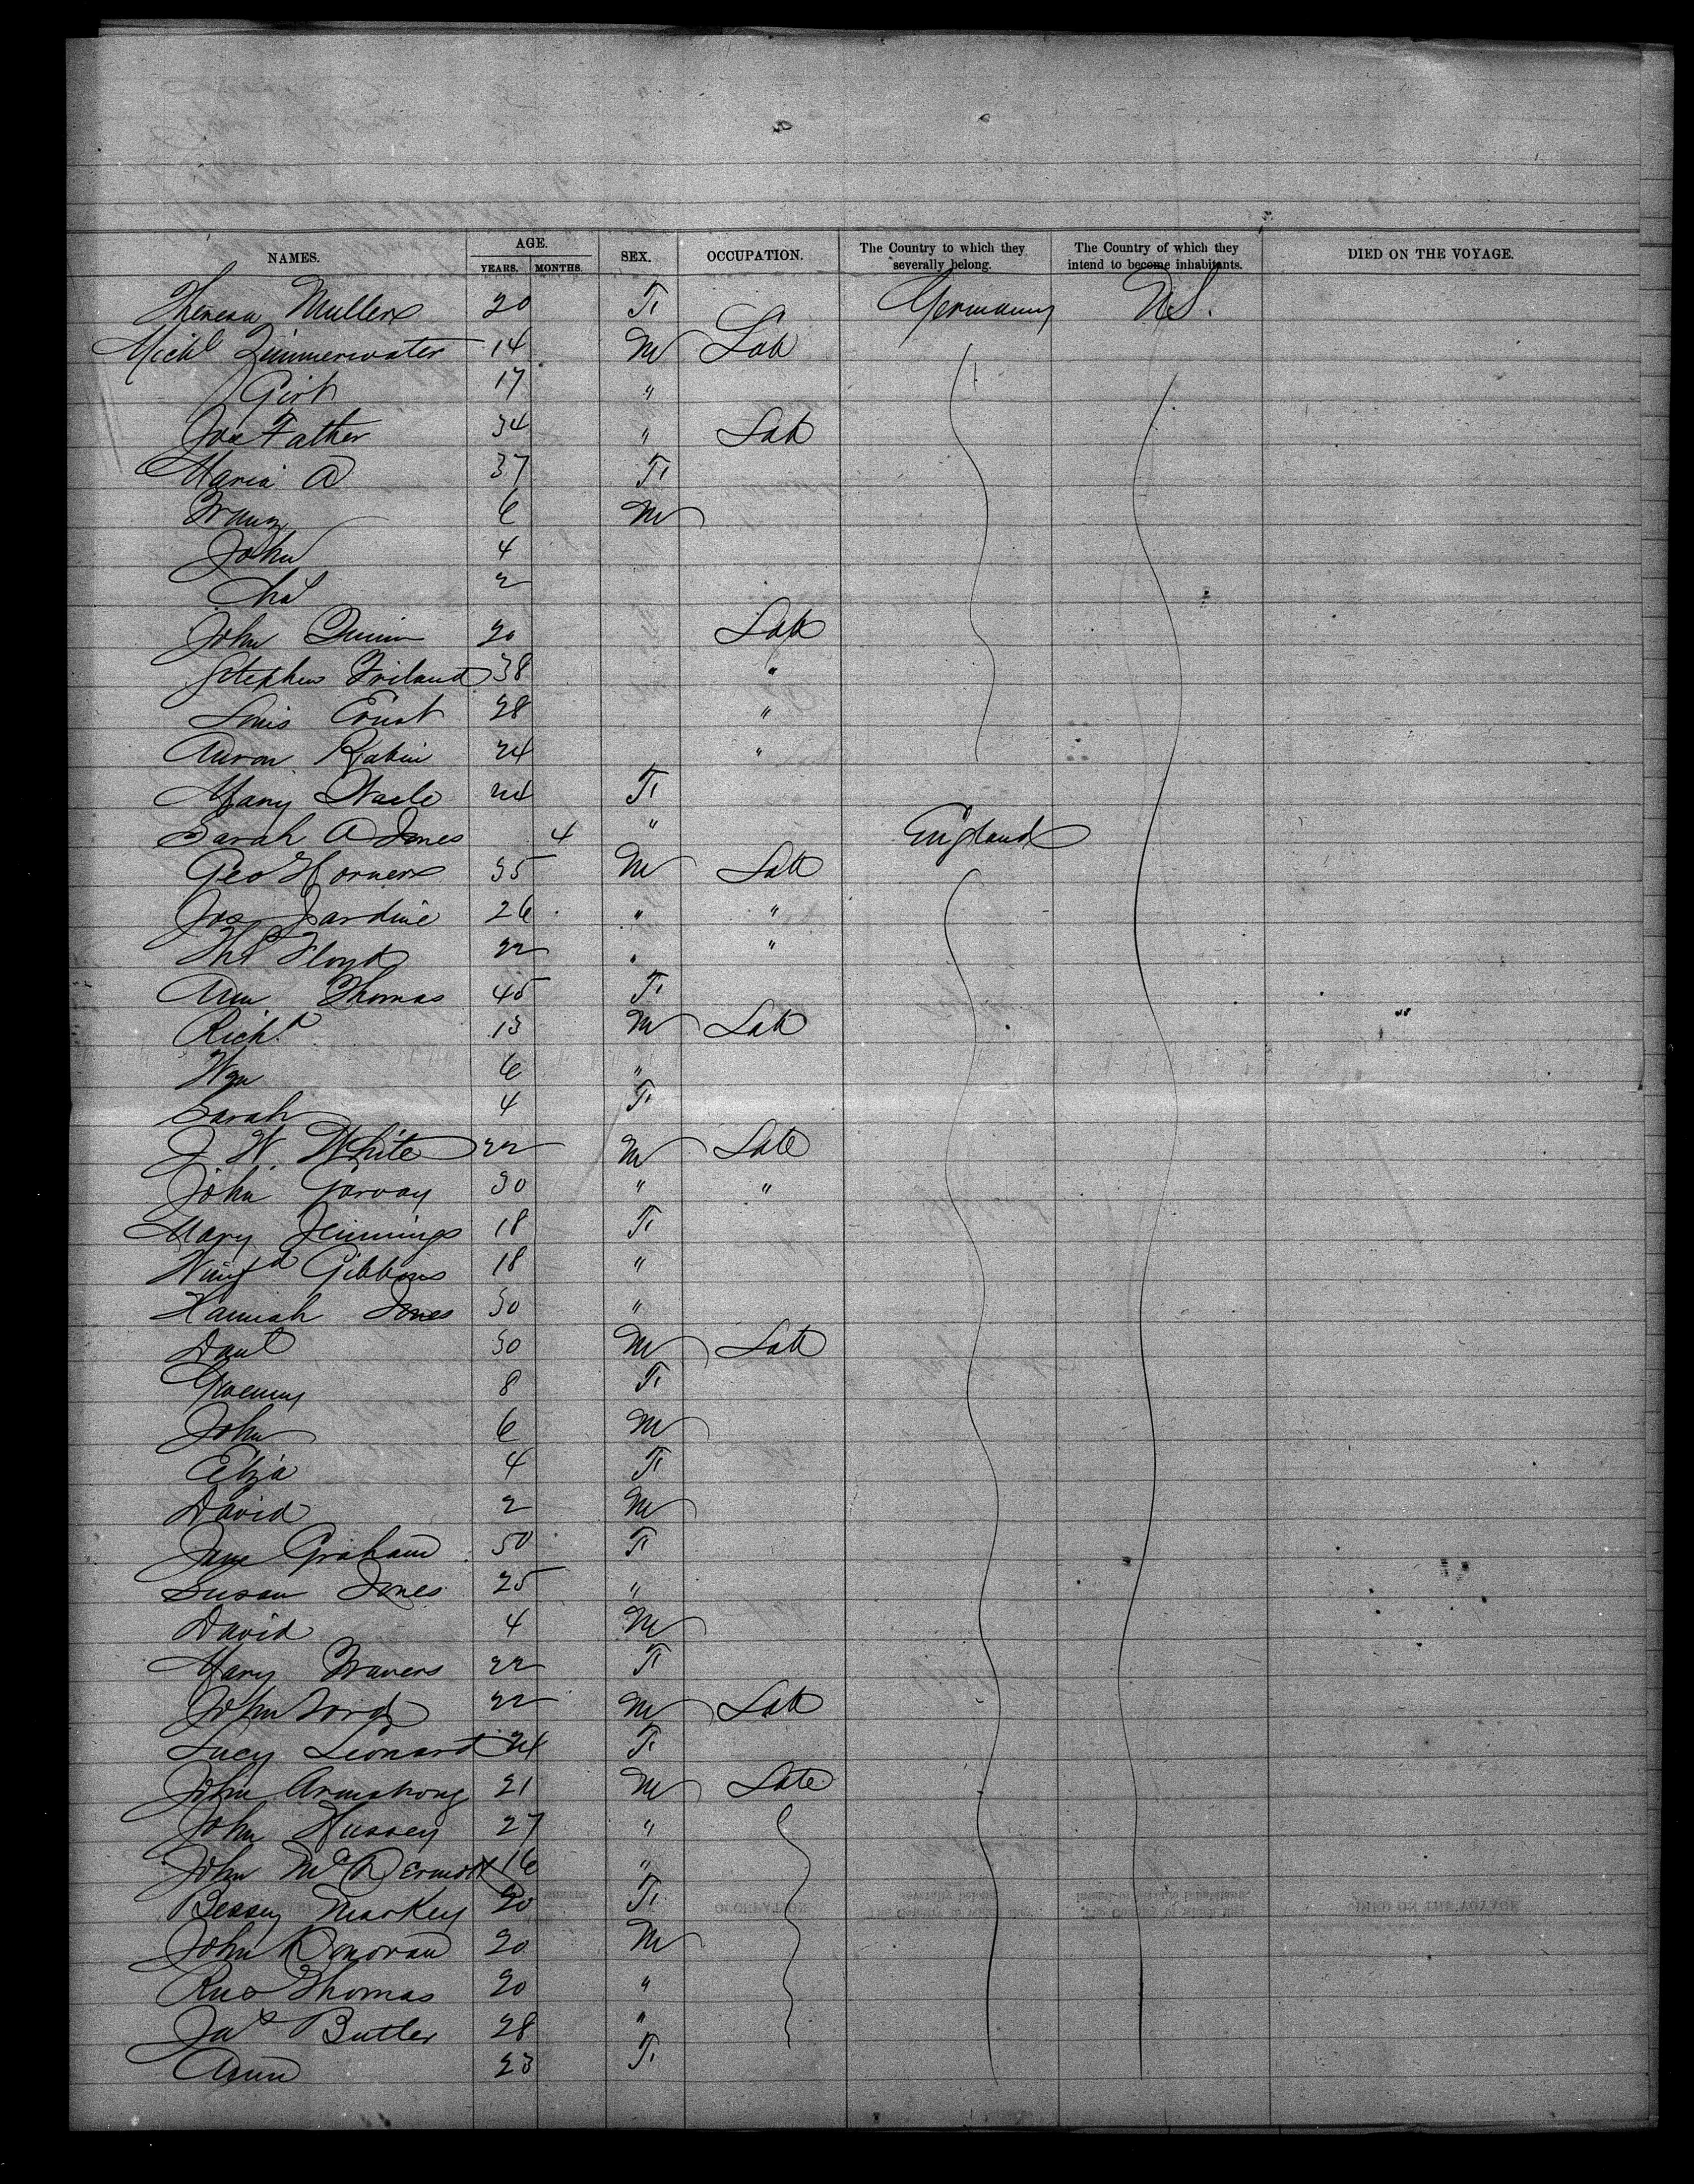 NAMES. AGE. YEARS. MONTHS. SEX. OCCUPATION. The Country to which they severally belong. The Country of which they intend to become inhabitants. DIED ON THE VOYAGE.
Theresa Muller 20 F Germany U.S.
Michl Zimmerwater 14 M Lab
Girt 17 "
Jos Father 34 " Lab
Maria A 37 F
Franz 6 M
John 4
Chs 2
John Quinn 20 Lab
Stephen Friland 38 "
Louis Ernst 28 "
Aaron Rabin 24 "
Mary Wacle 24 F
Sarah A Jones 4 " England
Geo Horner 35 M Lab
Jos Jardine 26 " "
Ths Floyd 22 " "
Ann Thomas 45 F
Richd 13 M Lab
Wm 6 "
Sarah 4 F
J W White 22 M Lab
John Garvay 30 " "
Mary Jennings 18 F
Winifd Gibbons 18 "
Hannah Jones 30 "
Danl 30 M Lab
8 F
John 6 M
Eliza 4 F
David 2 M
Jane Graham 50 F
Susan Jones 25 "
David 4 M
Mary Travers 22 F
John Ford 22 M Lab
Lucy Leonard 24 F
John Armstrong 21 M Lab
John Hussey 27 "
John McDermott 16 "
Bessey Markey 20 F
John Donovan 20 M
Thomas 20 "
Jas Butler 28 "
Ann 23 F